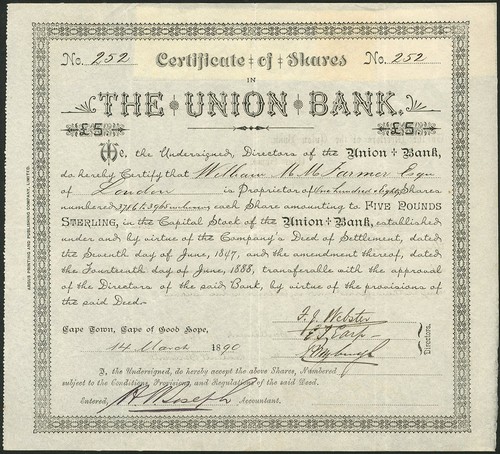 No. 252 Certificate of Shares No. 252
IN
THE UNION BANK.
£5 £5
We, the Undersigned, Directors of the Union Bank,
do hereby Certify that William M. M. Farmer Esqre
of London is Proprietor of One hundred eighty Shares
numbered 3716 to 3965 inclusive each Share amounting to FIVE POUNDS
STERLING, in the Capital Stock of the Union Bank, established
under and by virtue of the Company's Deed of Settlement, dated
the Seventh day of June, 1847, and the amendment thereof, dated
the Fourteenth day of June, 1888, transferable with the approval
of the Directors of the said Bank, by virtue of the provisions of
the said Deed.
Cape Town, Cape of Good Hope,
14 March 1890
F. J. Webster
Directors.
I, the Undersigned, do hereby accept the above Shares, Numbered
subject to the Conditions, Provisions, and Regulations of the said Deed.
Entered, Accountant.
ARGUS PRINTING AND PUBLISHING COMPANY, LIMITED